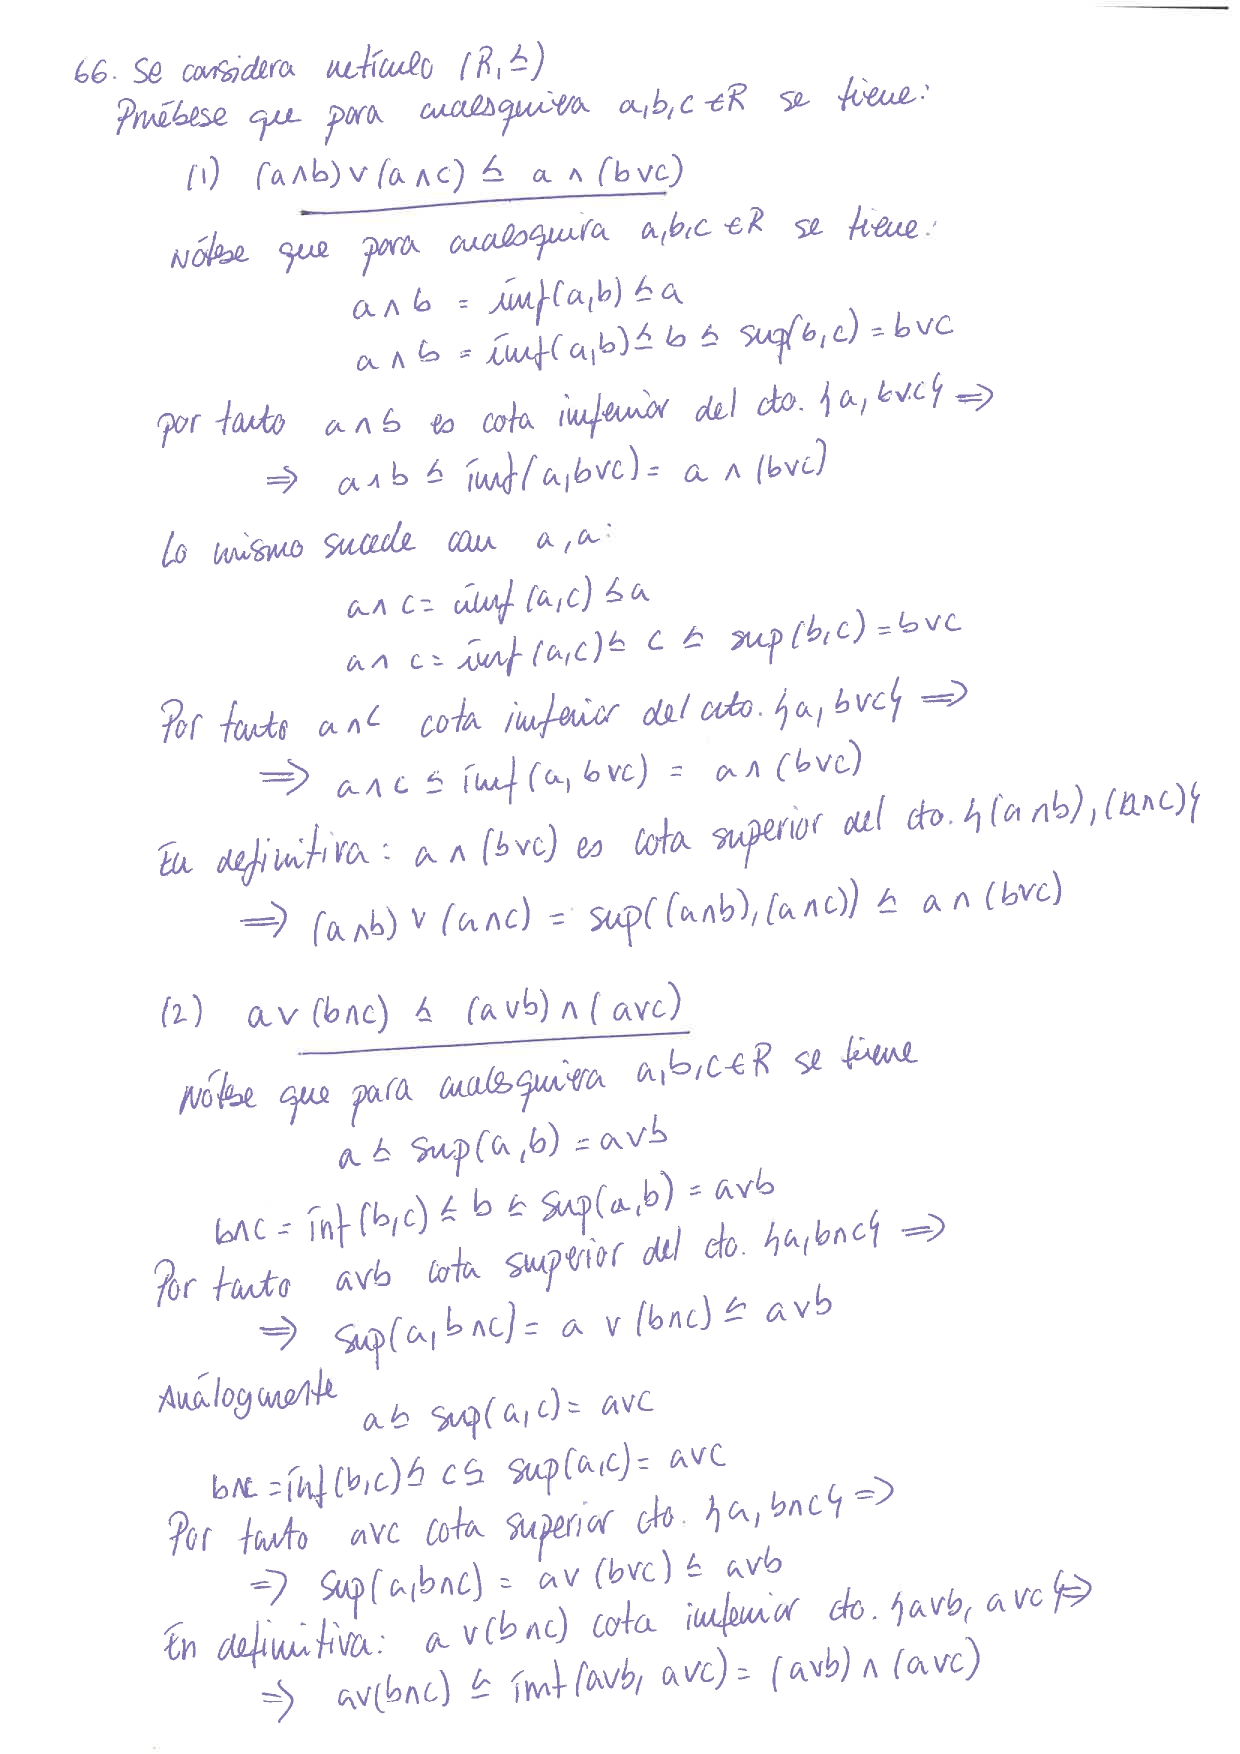 66. Se considera retículo (R, ≤)
Pruébese que para cualesquiera a,b,c ∈ R se tiene:
(1) (a∧b)∨(a∧c) ≤ a∧(b∨c)
Nótese que para cualesquira a,b,c ∈ R se tiene:
a∧b = ínf(a,b) ≤ a
a∧b = ínf(a,b) ≤ b ≤ sup(b,c) = b∨c
por tanto a∧b es cota inferior del cto. {a, b∨c} ⇒
⇒ a∧b ≤ ínf(a, b∨c) = a∧(b∨c)
Lo mismo sucede con a,a:
a∧c = ínf(a,c) ≤ a
a∧c = ínf(a,c) ≤ c ≤ sup(b,c) = b∨c
Por tanto a∧c cota inferior del cto. {a, b∨c} ⇒
⇒ a∧c ≤ ínf(a, b∨c) = a∧(b∨c)
En definitiva: a∧(b∨c) es cota superior del cto. {(a∧b), (a∧c)}
⇒ (a∧b)∨(a∧c) = sup((a∧b),(a∧c)) ≤ a∧(b∨c)
(2) a∨(b∧c) ≤ (a∨b)∧(a∨c)
Nótese que para cualesquiera a,b,c ∈ R se tiene
a ≤ sup(a,b) = a∨b
b∧c = ínf(b,c) ≤ b ≤ sup(a,b) = a∨b
Por tanto a∨b cota superior del cto. {a, b∧c} ⇒
⇒ sup(a, b∧c) = a∨(b∧c) ≤ a∨b
Análogmente
a ≤ sup(a,c) = a∨c
b∧c = ínf(b,c) ≤ c ≤ sup(a,c) = a∨c
Por tanto a∨c cota superior cto. {a, b∧c} ⇒
⇒ sup(a, b∧c) = a∨(b∨c) ≤ a∨b
En definitiva: a∨(b∧c) cota inferior cto. {a∨b, a∨c} ⇒
⇒ a∨(b∧c) ≤ ínf(a∨b, a∨c) = (a∨b)∧(a∨c)